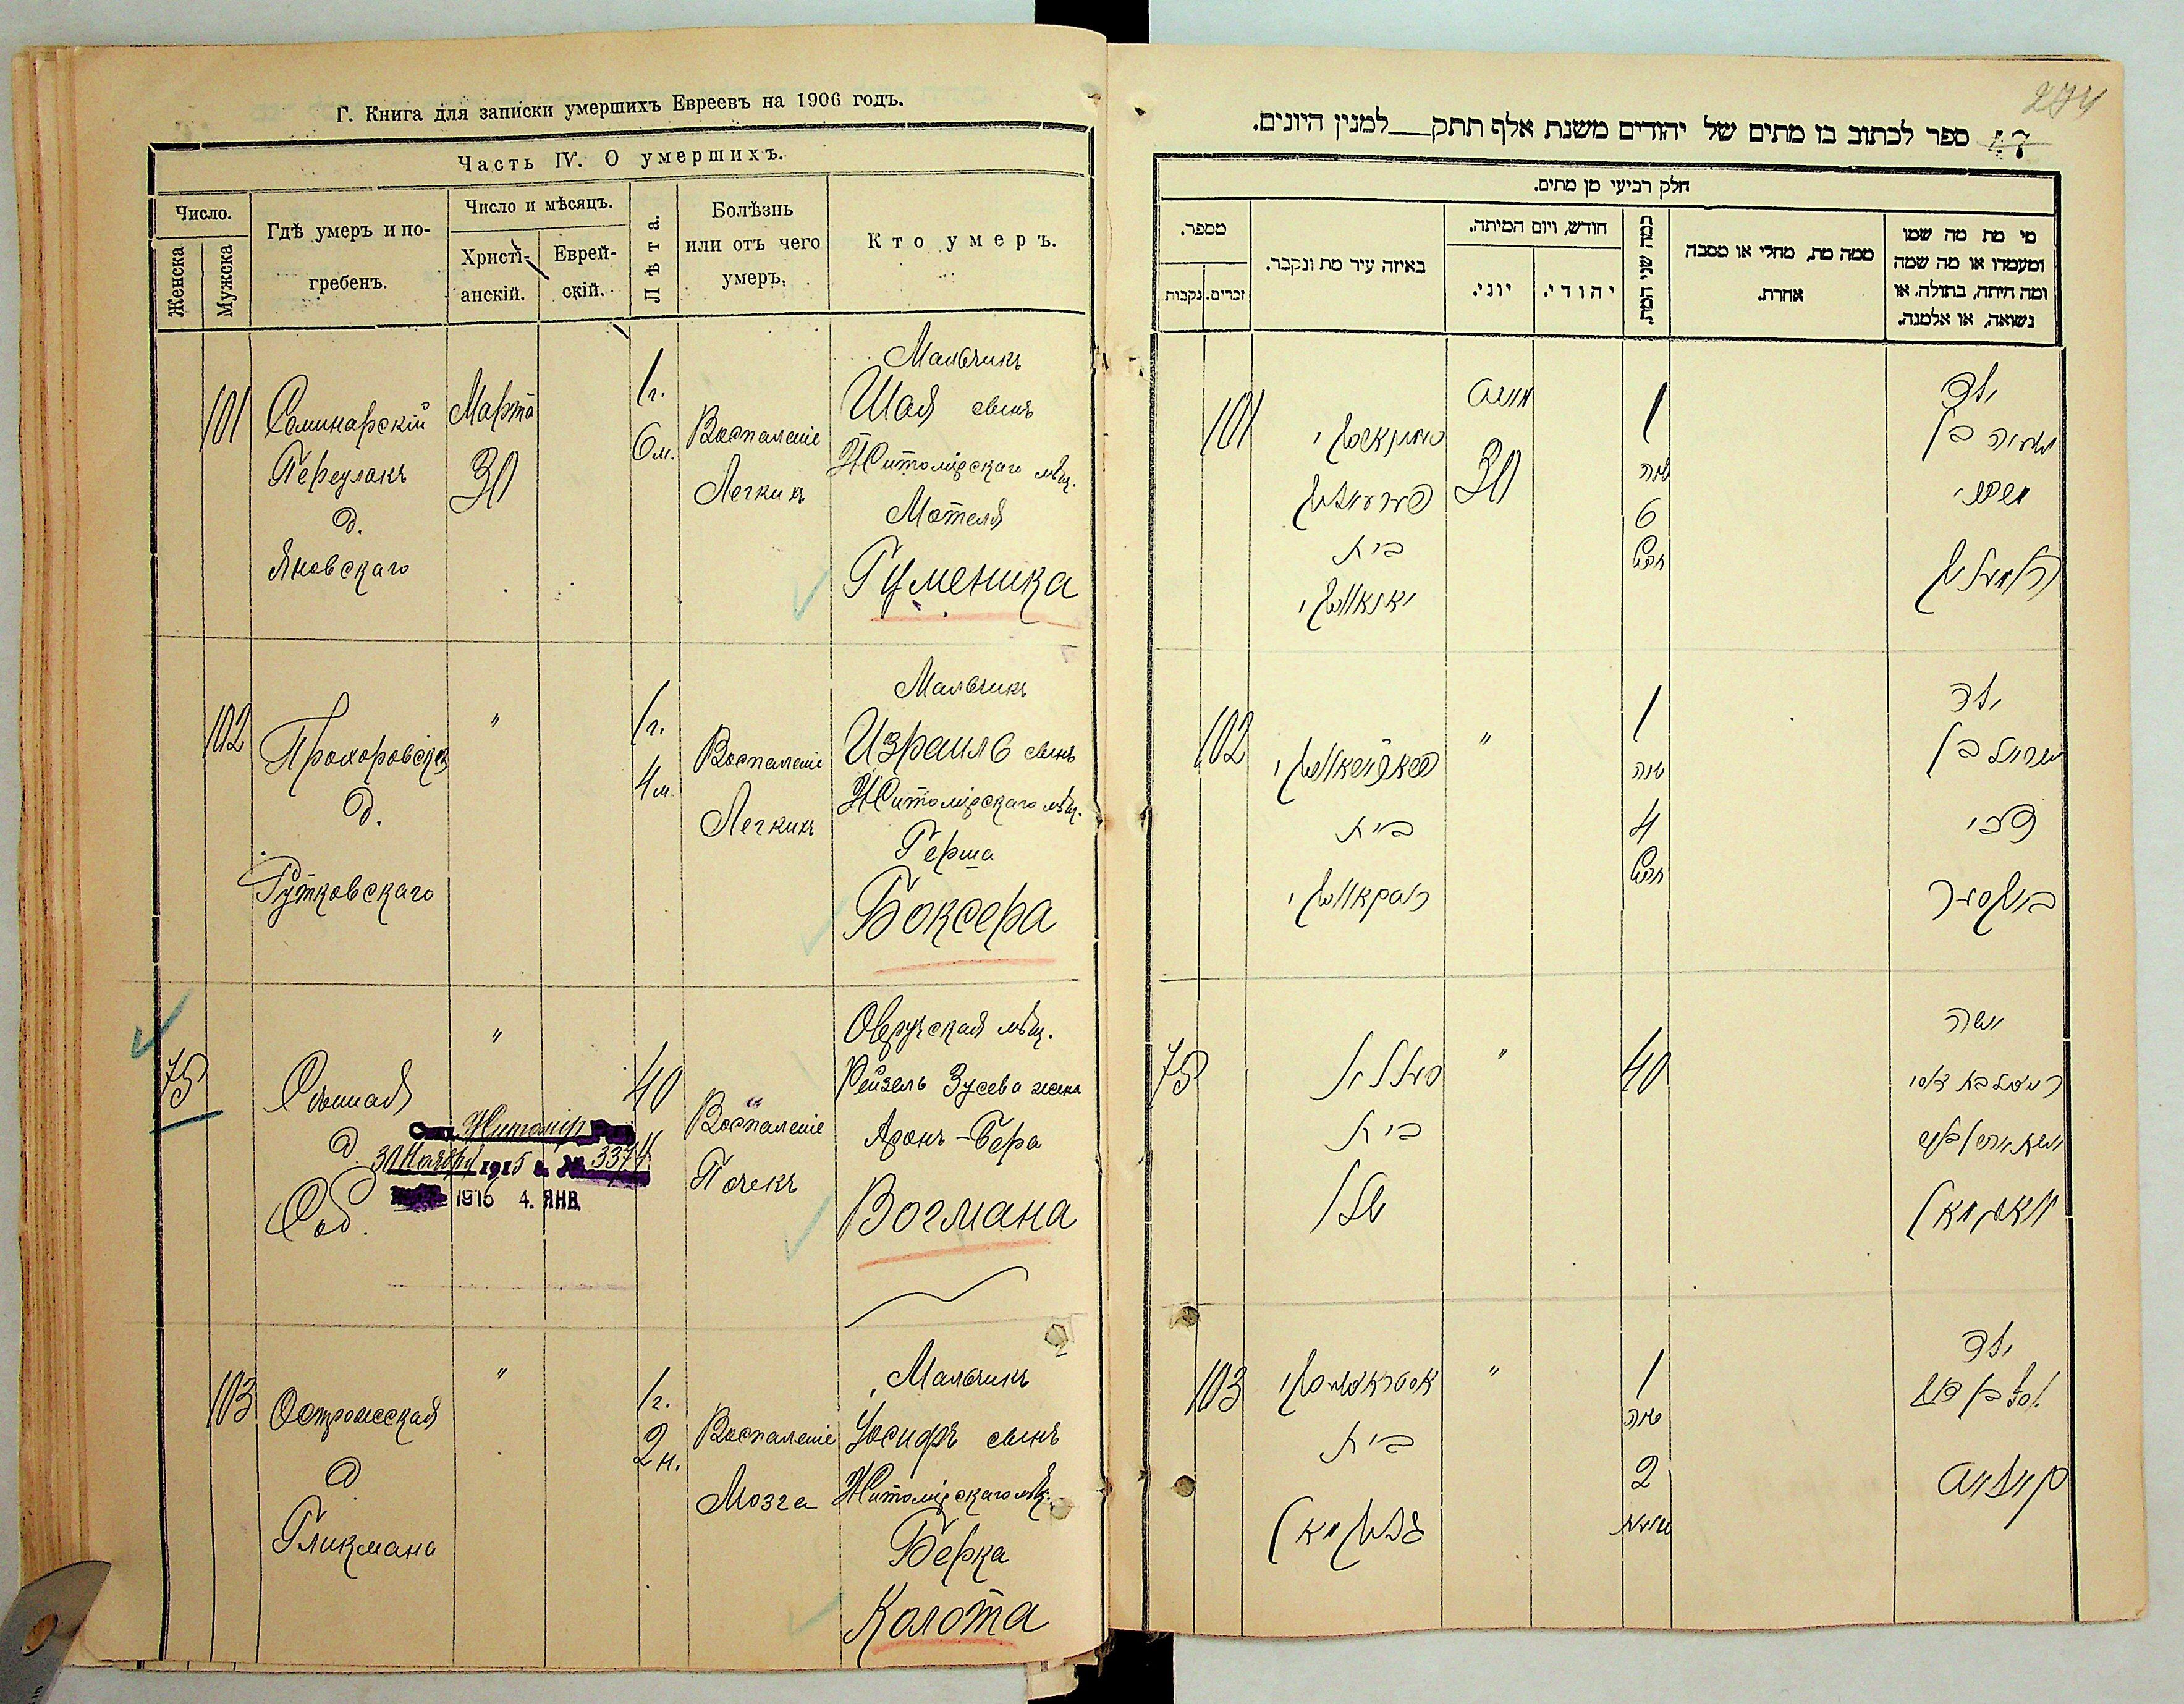 Г. Книга для записки умершихъ Евреевъ на 1906 годъ.
Часть IV. О умершихъ.
Число.
Женска
Мужска
Гдѣ умеръ и по-
гребенъ.
Число и мѣсяцъ.
Христі-
анскій.
Еврей-
скій.
Лѣта.
Болѣзнь
или отъ чего
умеръ.
Кто умеръ.
101
Семинарскій
Переулокъ
д.
Яновскаго
Марта
30
1 г.
6 м.
Воспаленіе
Легкихъ
Мальчикъ
Шая сынъ
Житомірскаго мѣщ.
Мотеля
Гуменика
102
Прохоровская
д.
Рутковскаго
"
1 г.
4 м.
Воспаленіе
Легкихъ
Мальчикъ
Израиль сынъ
Житомірскаго мѣщ.
Герша
Боксера
75
д.
"
40
Воспаленіе
Почекъ
Овручская мѣщ.
Рейзель Зусева жена
Аронъ-Бера
Вогмана
Житомір
30 Ноября 1915 г. № 3374
1916 4. ЯНВ.
103
Острожская
д
Гликмана
"
1 г.
2 н.
Воспаленіе
Мозга
Мальчикъ
Іосифъ сынъ
Житомірскаго мѣщ.
Берка
Колота
274
ספר לכתוב בז מתים של יהודים משנת אלף תתק__למנין היונים.
חלק רביעי מן מתים.
מספר.
זכרים.
נקבות
באיזה עיר מת ונקבר.
חודש, ויום המיתה.
יוני.
יהודי.
כמה שני המת.
ממה מת, מחלי או מסבה
אחרת.
מי מת מה שמו
ומעמדו או מה שמה
ומה היתה, בתולה, או
נשואה, או אלמנה.
101
בית
יאנאווסקי
30
1
שנה
6
חדש
ילד
ישעיה בן
102
בית
"
1
שנה
4
חדש
ילד
ישראל בן
צבי
באקסער
75
בית
"
40
אשה
וואגמאן
103
בית
גליקמאן
"
1
שנה
2
ילד